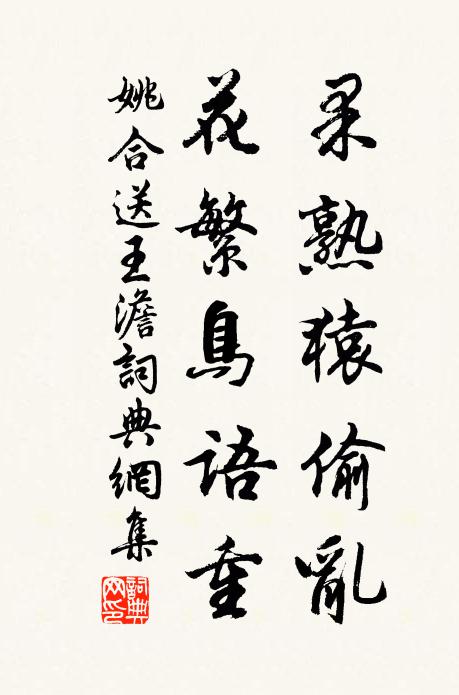 果熟猿偷亂
花繁鳥語重
姚合送王澹詞典網集
詞典網印